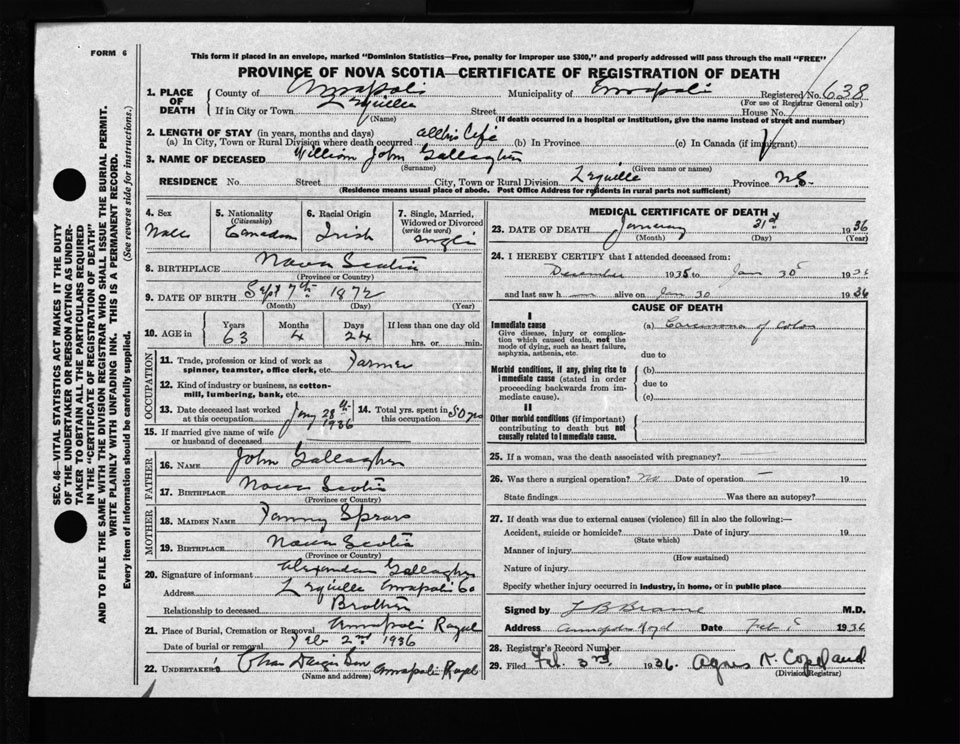 FORM 6
This form if placed in an envelope, marked "Dominion Statistics—Free, penalty for improper use $300," and properly addressed will pass through the mail "FREE"
PROVINCE OF NOVA SCOTIA—CERTIFICATE OF REGISTRATION OF DEATH
SEC. 46—VITAL STATISTICS ACT MAKES IT THE DUTY
OF THE UNDERTAKER OR PERSON ACTING AS UNDER-
TAKER TO OBTAIN ALL THE PARTICULARS REQUIRED
IN THE "CERTIFICATE OF REGISTRATION OF DEATH"
AND TO FILE THE SAME WITH THE DIVISION REGISTRAR WHO SHALL ISSUE THE BURIAL PERMIT.
WRITE PLAINLY WITH UNFADING INK. THIS IS A PERMANENT RECORD.
Every item of information should be carefully supplied. (See reverse side for instructions.)
1. PLACE OF DEATH County of Annapolis Municipality of Annapolis Registered No. 638
(For use of Registrar General only)
If in City or Town Lequille Street House No.
(Name) (If death occurred in a hospital or institution, give the name instead of street and number)
2. LENGTH OF STAY (in years, months and days)
(a) In City, Town or Rural Division where death occurred all his life (b) In Province (c) In Canada (if immigrant)
3. NAME OF DECEASED William John Gallagher
(Surname) (Given name or names)
RESIDENCE No. Street City, Town or Rural Division Lequille Province N.S.
(Residence means usual place of abode. Post Office Address for residents in rural parts not sufficient)
4. Sex Male
5. Nationality (Citizenship) Canadian
6. Racial Origin Irish
7. Single, Married, Widowed or Divorced (write the word) single
8. BIRTHPLACE Nova Scotia
(Province or Country)
9. DATE OF BIRTH Sept 7th 1872
(Month) (Day) (Year)
10. AGE in Years 63 Months 4 Days 24 If less than one day old hrs. or min.
OCCUPATION
11. Trade, profession or kind of work as spinner, teamster, office clerk, etc. Farmer
12. Kind of industry or business, as cotton-mill, lumbering, bank, etc.
13. Date deceased last worked at this occupation Jany 28th 1936
14. Total yrs. spent in this occupation 50 yrs
15. If married give name of wife or husband of deceased
FATHER
16. NAME John Gallagher
17. BIRTHPLACE Nova Scotia
(Province or Country)
MOTHER
18. MAIDEN NAME Fanny
19. BIRTHPLACE Nova Scotia
(Province or Country)
20. Signature of informant Alexander Gallagher
Address Lequille Annapolis Co
Relationship to deceased Brother
21. Place of Burial, Cremation or Removal Annapolis Royal
Date of burial or removal Feb 2nd 1936
22. UNDERTAKER'S Annapolis Royal
(Name and address)
MEDICAL CERTIFICATE OF DEATH
23. DATE OF DEATH January 31st 1936
(Month) (Day) (Year)
24. I HEREBY CERTIFY that I attended deceased from:
December 1935 to Jan 30 1936
and last saw h alive on Jan 30 1936
CAUSE OF DEATH
I
Immediate cause (a) Carcinoma of Colon
Give disease, injury or complication which caused death, not the mode of dying, such as heart failure, asphyxia, asthenia, etc.
due to
Morbid conditions, if any, giving rise to immediate cause (stated in order proceeding backwards from immediate cause).
(b)
due to
(c)
II
Other morbid conditions (if important) contributing to death but not causally related to immediate cause.
25. If a woman, was the death associated with pregnancy?
26. Was there a surgical operation? No Date of operation 19
State findings Was there an autopsy?
27. If death was due to external causes (violence) fill in also the following:—
Accident, suicide or homicide? Date of injury 19
(State which)
Manner of injury
(How sustained)
Nature of injury
Specify whether injury occurred in industry, in home, or in public place
Signed by L B Braine M.D.
Address Annapolis Royal Date Feb 1936
28. Registrar's Record Number
29. Filed Feb. 3rd 1936. Agnes K. Copeland
(Division Registrar)